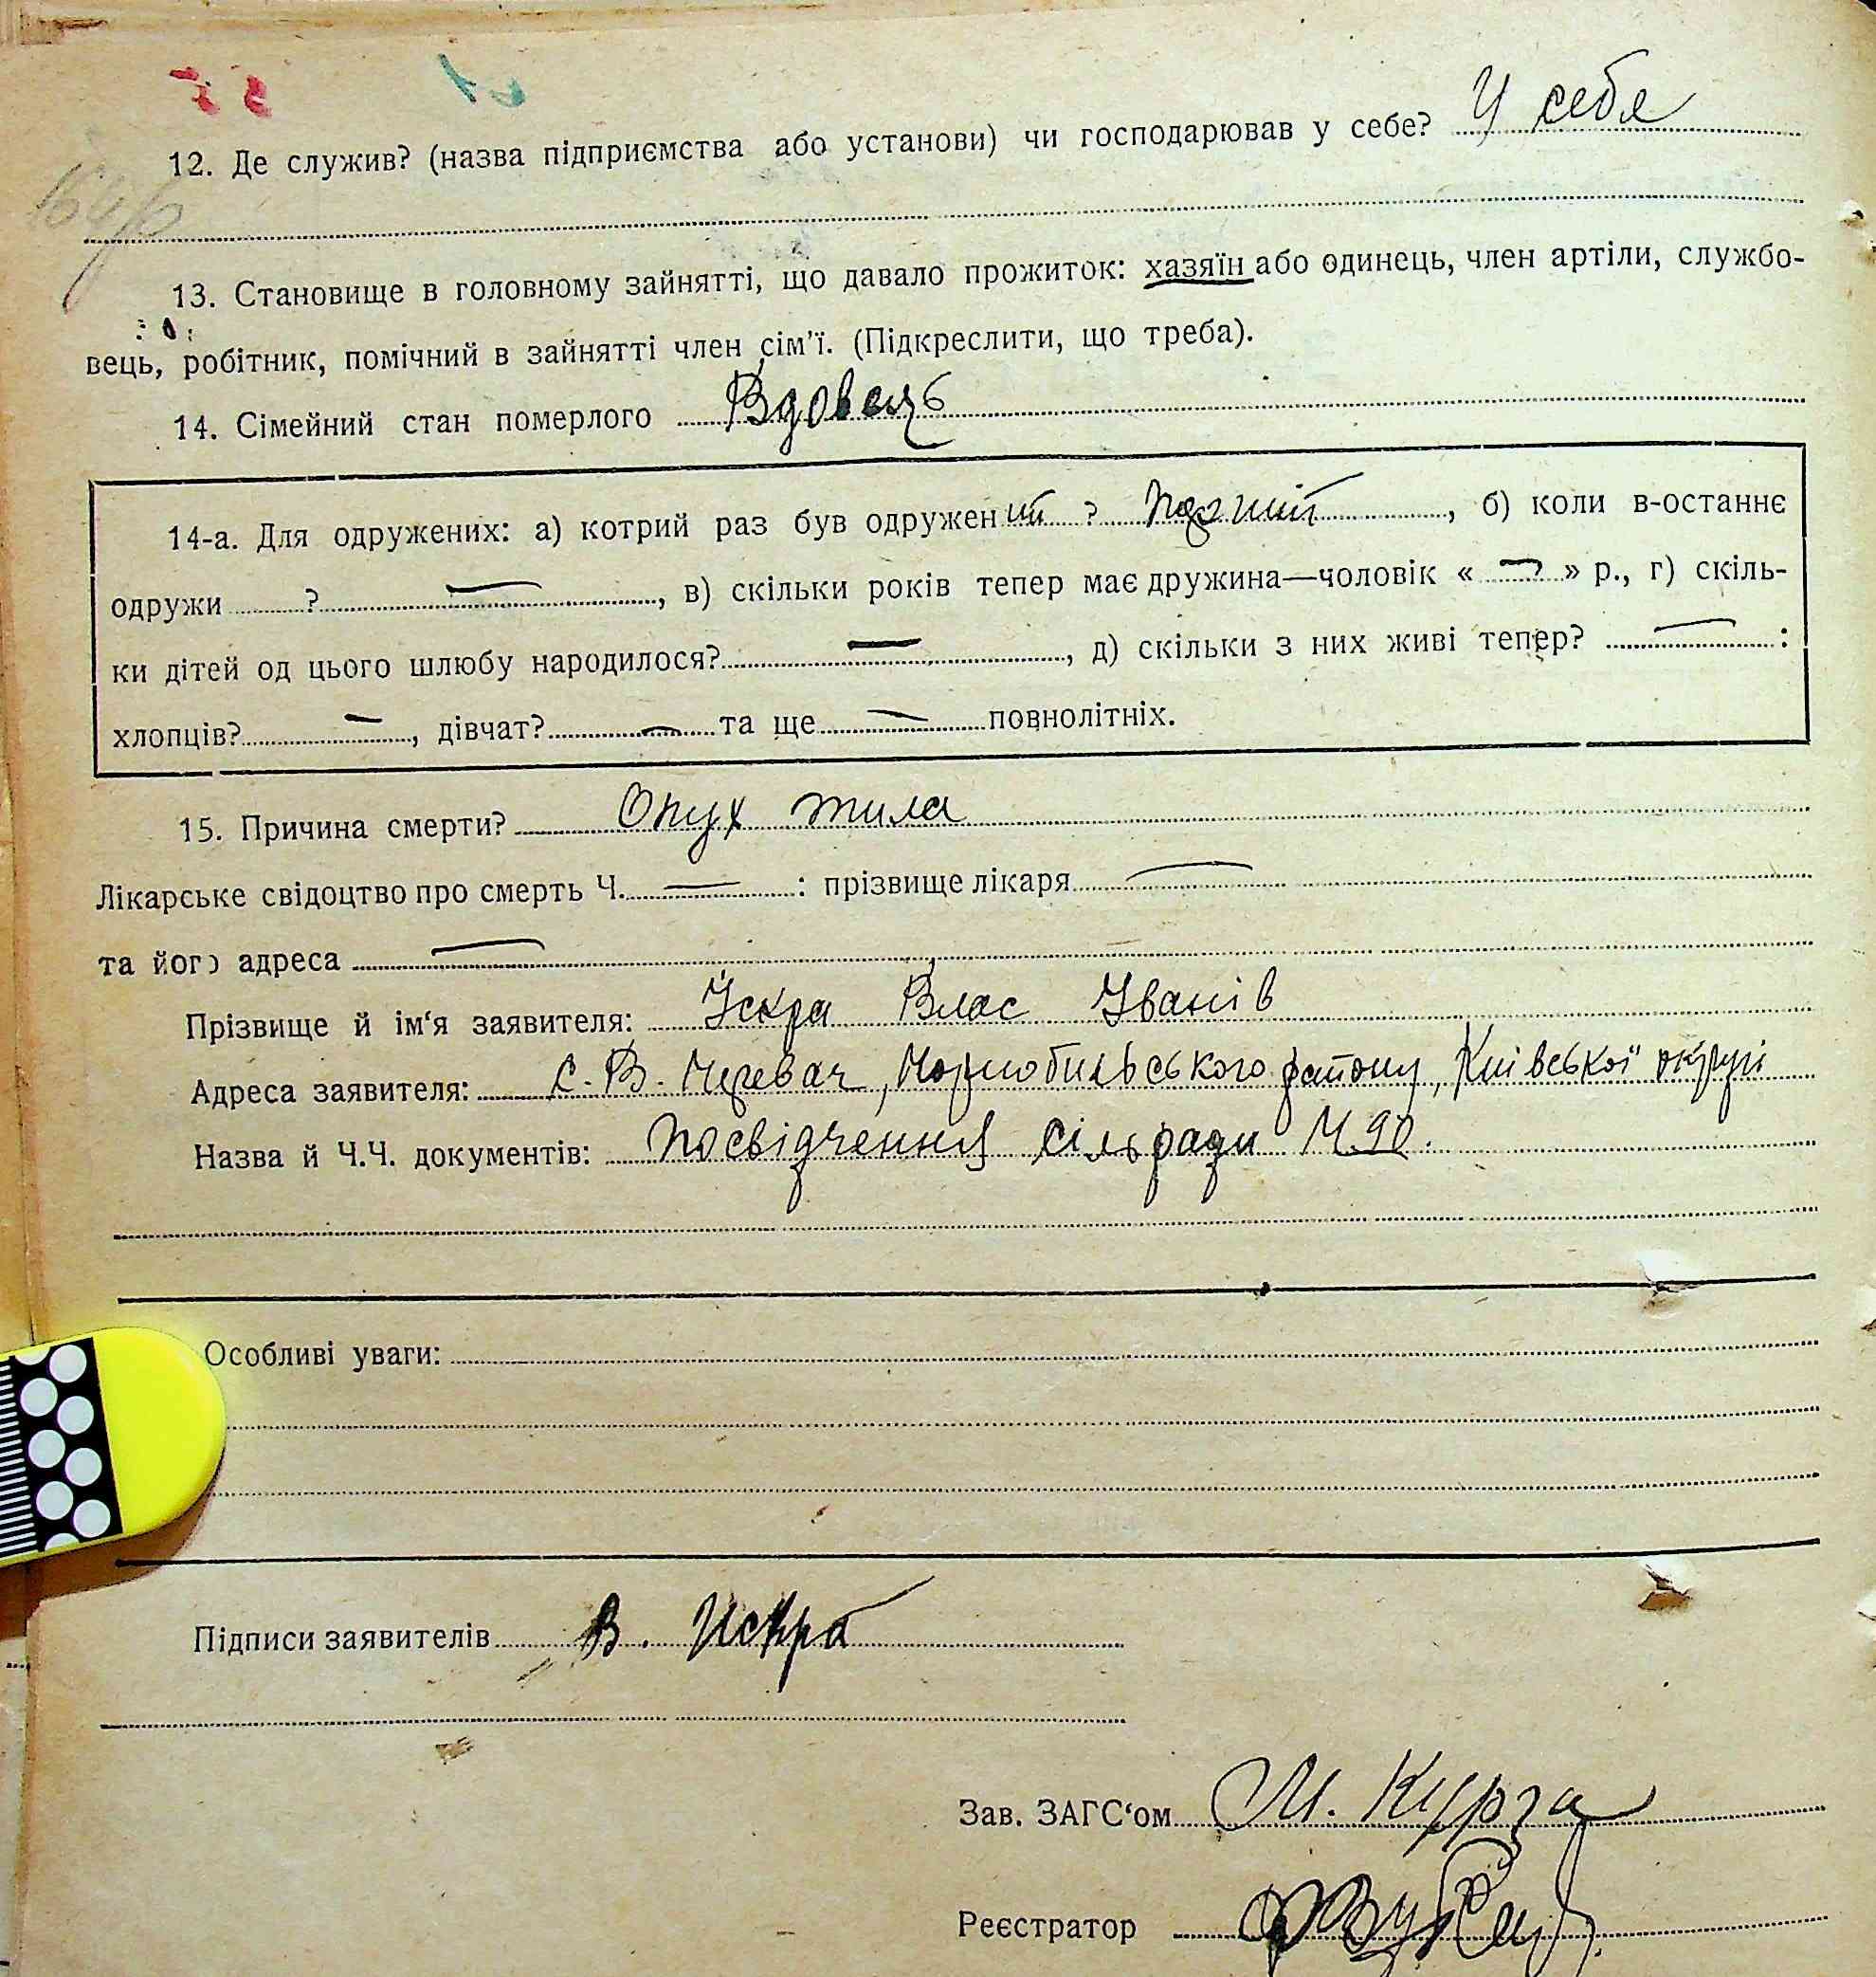 12. Де служив? (назва підприємства або установи) чи господарював у себе? У себе
13. Становище в головному зайнятті, що давало прожиток: хазяїн або одинець, член артіли, службо-
вець, робітник, помічний в зайнятті член сім'ї. (Підкреслити, що треба).
14. Сімейний стан померлого Вдовець
14-а. Для одружених: а) котрий раз був одружений ? , б) коли в-останнє
одружи ? — , в) скільки років тепер має дружина—чоловік « — » р., г) скіль-
ки дітей од цього шлюбу народилося? — , д) скільки з них живі тепер? — :
хлопців? — , дівчат? — та ще — повнолітніх.
15. Причина смерти? Опух тила
Лікарське свідоцтво про смерть Ч. — : прізвище лікаря —
та його адреса —
Прізвище й ім'я заявителя: Іскра Влас Іванів
Адреса заявителя: с. В. Черевач, Чорнобильського району, Київської округі
Назва й Ч.Ч. документів: Посвідчення сільради Ч. 90.
Особливі уваги:
Підписи заявителів В. Искра
Зав. ЗАГС'ом М. Курза
Реєстратор